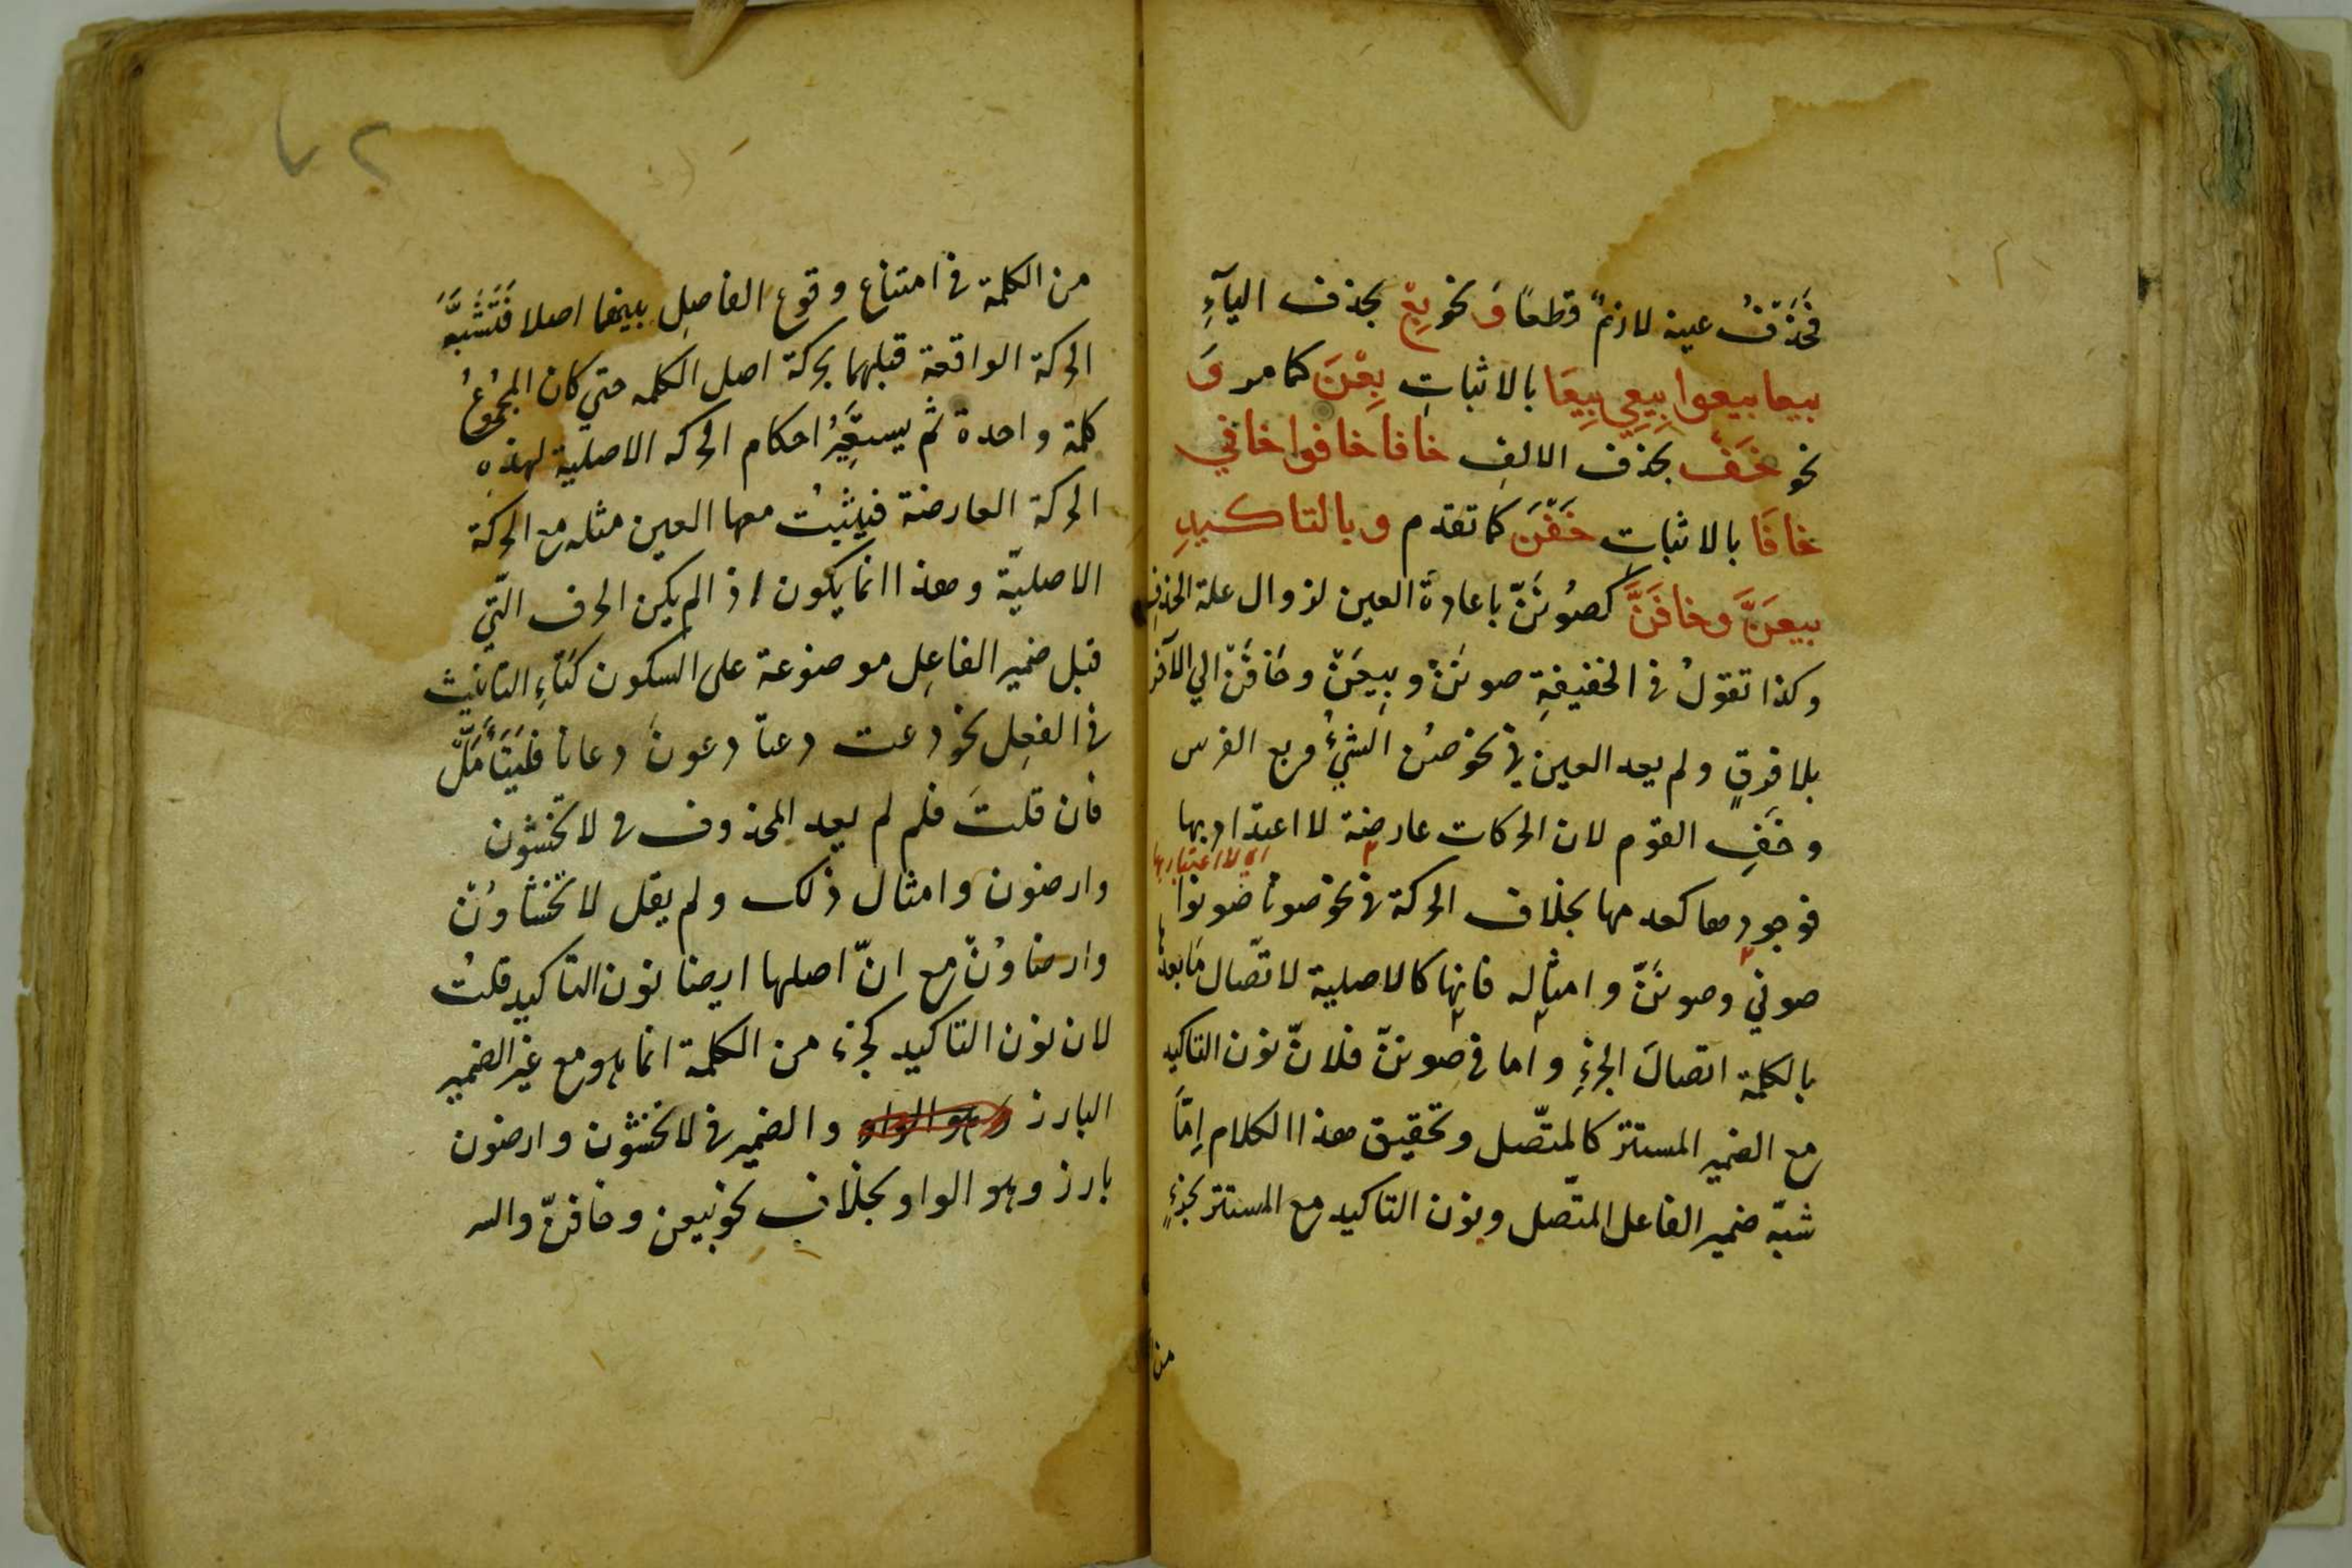 فَحَذْفُ عينه لازمٌ قطعًا وَ نحو بِعْ بحذف اليآءِ
بيعا بيعوا بِيعِي بِيعَا بالاثباتِ بِعْنَ كما مر وَ
نحو خَفْ بحذف الالفِ خافا خافوا خافي
خافَا بالاثباتِ خَفْنَ كما تقدم وبالتاكيدِ
بيعَنَّ وخافَنَّ كصُونَنّ باعادة العين لزوال علة الحذفِ
وكذا تقولُ في الخفيفةِ صونَنْ وبِيعَنْ وخَافَنْ الي الآخر
بلا فرقٍ ولم يعد العين في نحو صُن الشيْءُ وبع الفرس
وخَفِ القوم لان الحركات عارضة لا اعتداد بها
اي لا اعتبار بها
فوجودها كعدمها بخلاف الحركة في نحو صونا صونوا
صوني وصونَنّ وامثاله فانها كالاصلية لاتّصال مَا بعدها
بالكلمة اتصالَ الجزءِ واما في صوننّ فلانّ نون التاكيد
مع الضمير المستتر كالمتّصل وتحقيق هذا الكلام اِمّاَ
شبّه ضمير الفاعل المتّصل ونون التاكيد مع المستتر بجزءٍ
من
٤٢
من الكلمة في امتناع وقوع الفاصلِ بينهما اصلا فَتَشَبَّهَ
الحركة الواقعة قبلهما بحركة اصل الكلمه حتي كان المجموعُ
كلمة واحدة ثم يستعِيرُ احكام الحركه الاصلية لهذهِ
الحركة العارضة فيثبتُ معها العين مثله مع الحركة
الاصليّة وهذا انما يكون اذا لم يكن الحرف الّتي
قبل ضمير الفاعِلِ موضوعة على السكون كتاءِ التانيث
في الفعِلِ نحو دعت دعتا دعون دعانا فليَتَأَمَّلْ
فان قلتَ فلم لم يعد المحذوف في لا تخشون
وارضون وامثال ذلك ولم يقل لا تخشاوُنّ
وارضاوُنّ مع انّ اصلها ايضا نون التاكيد قلتُ
لان نون التاكيد كجزء من الكلمة انما هو مع غير الضمير
البارز وهو الواو والضمير في لا تخشون وارضون
بارز وهو الواو بخلاف نحو بيعن وخافنّ والله